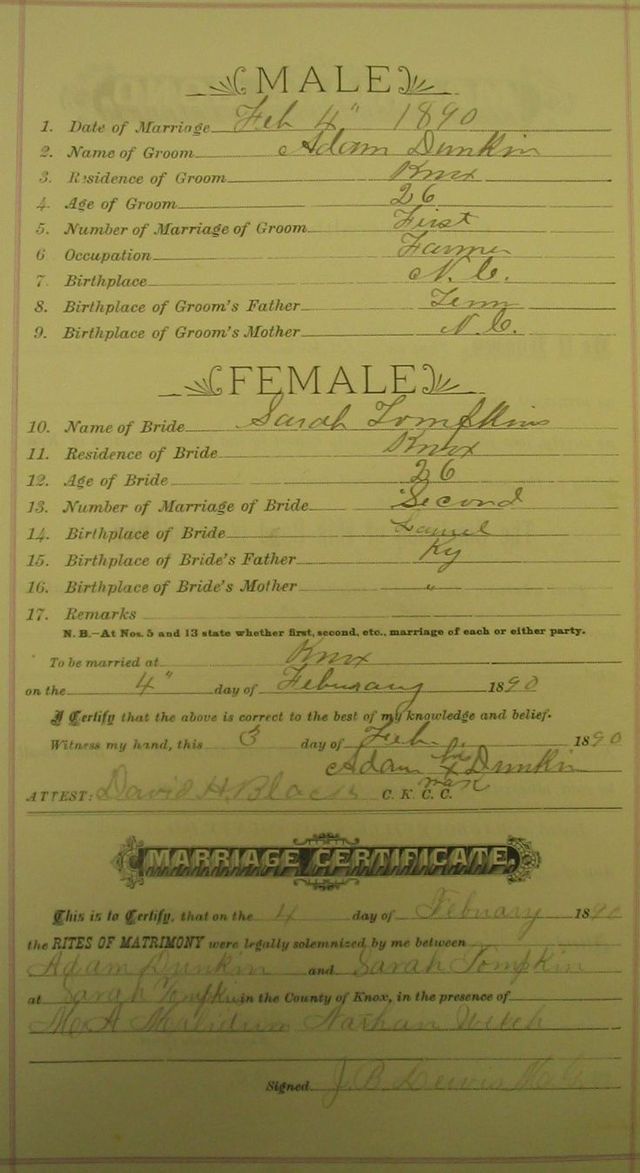 MALE
1. Date of Marriage Feb 4" 1890
2. Name of Groom Adam Dunkin
3. Residence of Groom Knox
4. Age of Groom 26
5. Number of Marriage of Groom First
6 Occupation Farmer
7. Birthplace N. C.
8. Birthplace of Groom's Father Tenn
9. Birthplace of Groom's Mother N. C.
FEMALE
10. Name of Bride Sarah Tompkins
11. Residence of Bride Knox
12. Age of Bride 26
13. Number of Marriage of Bride Second
14. Birthplace of Bride Laurel
15. Birthplace of Bride's Father Ky
16. Birthplace of Bride's Mother "
17. Remarks
N. B.—At Nos. 5 and 13 state whether first, second, etc., marriage of each or either party.
To be married at Knox
on the 4" day of Februaary 1890
I Certify that the above is correct to the best of my knowledge and belief.
Witness my hand, this 3 day of Feb 1890
Adam his x mark Dunkin
ATTEST: David H. Black C. K. C. C.
MARRIAGE CERTIFICATE.
This is to Certify, that on the 4 day of Febuary 1890
the RITES OF MATRIMONY were legally solemnized by me between
Adam Dunkin and Sarah Tompkin
at Sarah Tompkin in the County of Knox, in the presence of
Nathan
Signed J. B. Lewis